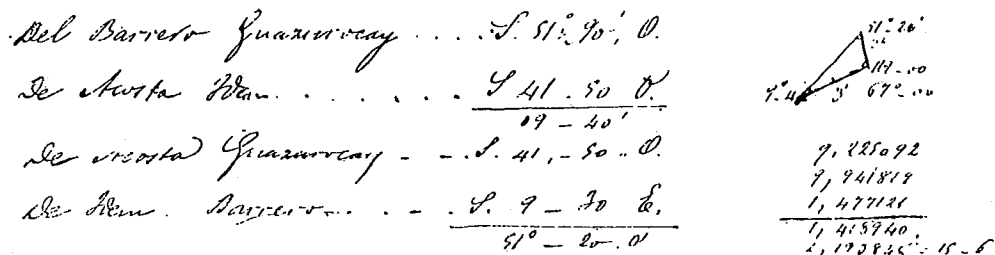 Del Barrero Guazurocay .... S. 51°. 90', O.
De Acosta Idem ...... S 41 . 50 O.
09 - 40'
De Acosta Guazurocay - - S. 41, - 50 .. O.
De Idem. Barrero .... - S. 9 - 30 E.
51° - 20 . 0'
51° 20'
119 - 00
3' 67° - 00
9, 225092
9, 941819
1, 477121
1, 418940.
15 - 6